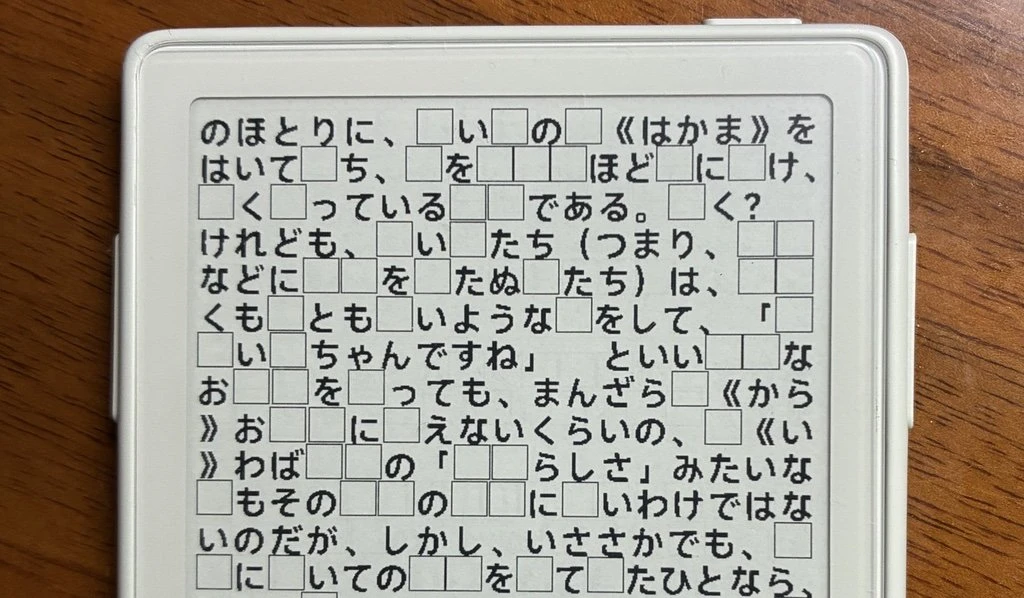 のほとりに、□い□の□《はかま》を
はいて□ち、□を□□□ほど□に□け、
□く□っている□□である。□く?
けれども、□い□たち(つまり、□□
などに□□を□たぬ□たち)は、□□
くも□とも□いような□をして、「□
□い□ちゃんですね」 といい□□な
お□□を□っても、まんざら□《から
》お□□に□えないくらいの、□《い
》わば□□の「□□らしさ」みたいな
□もその□□の□□に□いわけではな
いのだが、しかし、いささかでも、□
□に□いての□□を□て□たひとなら、